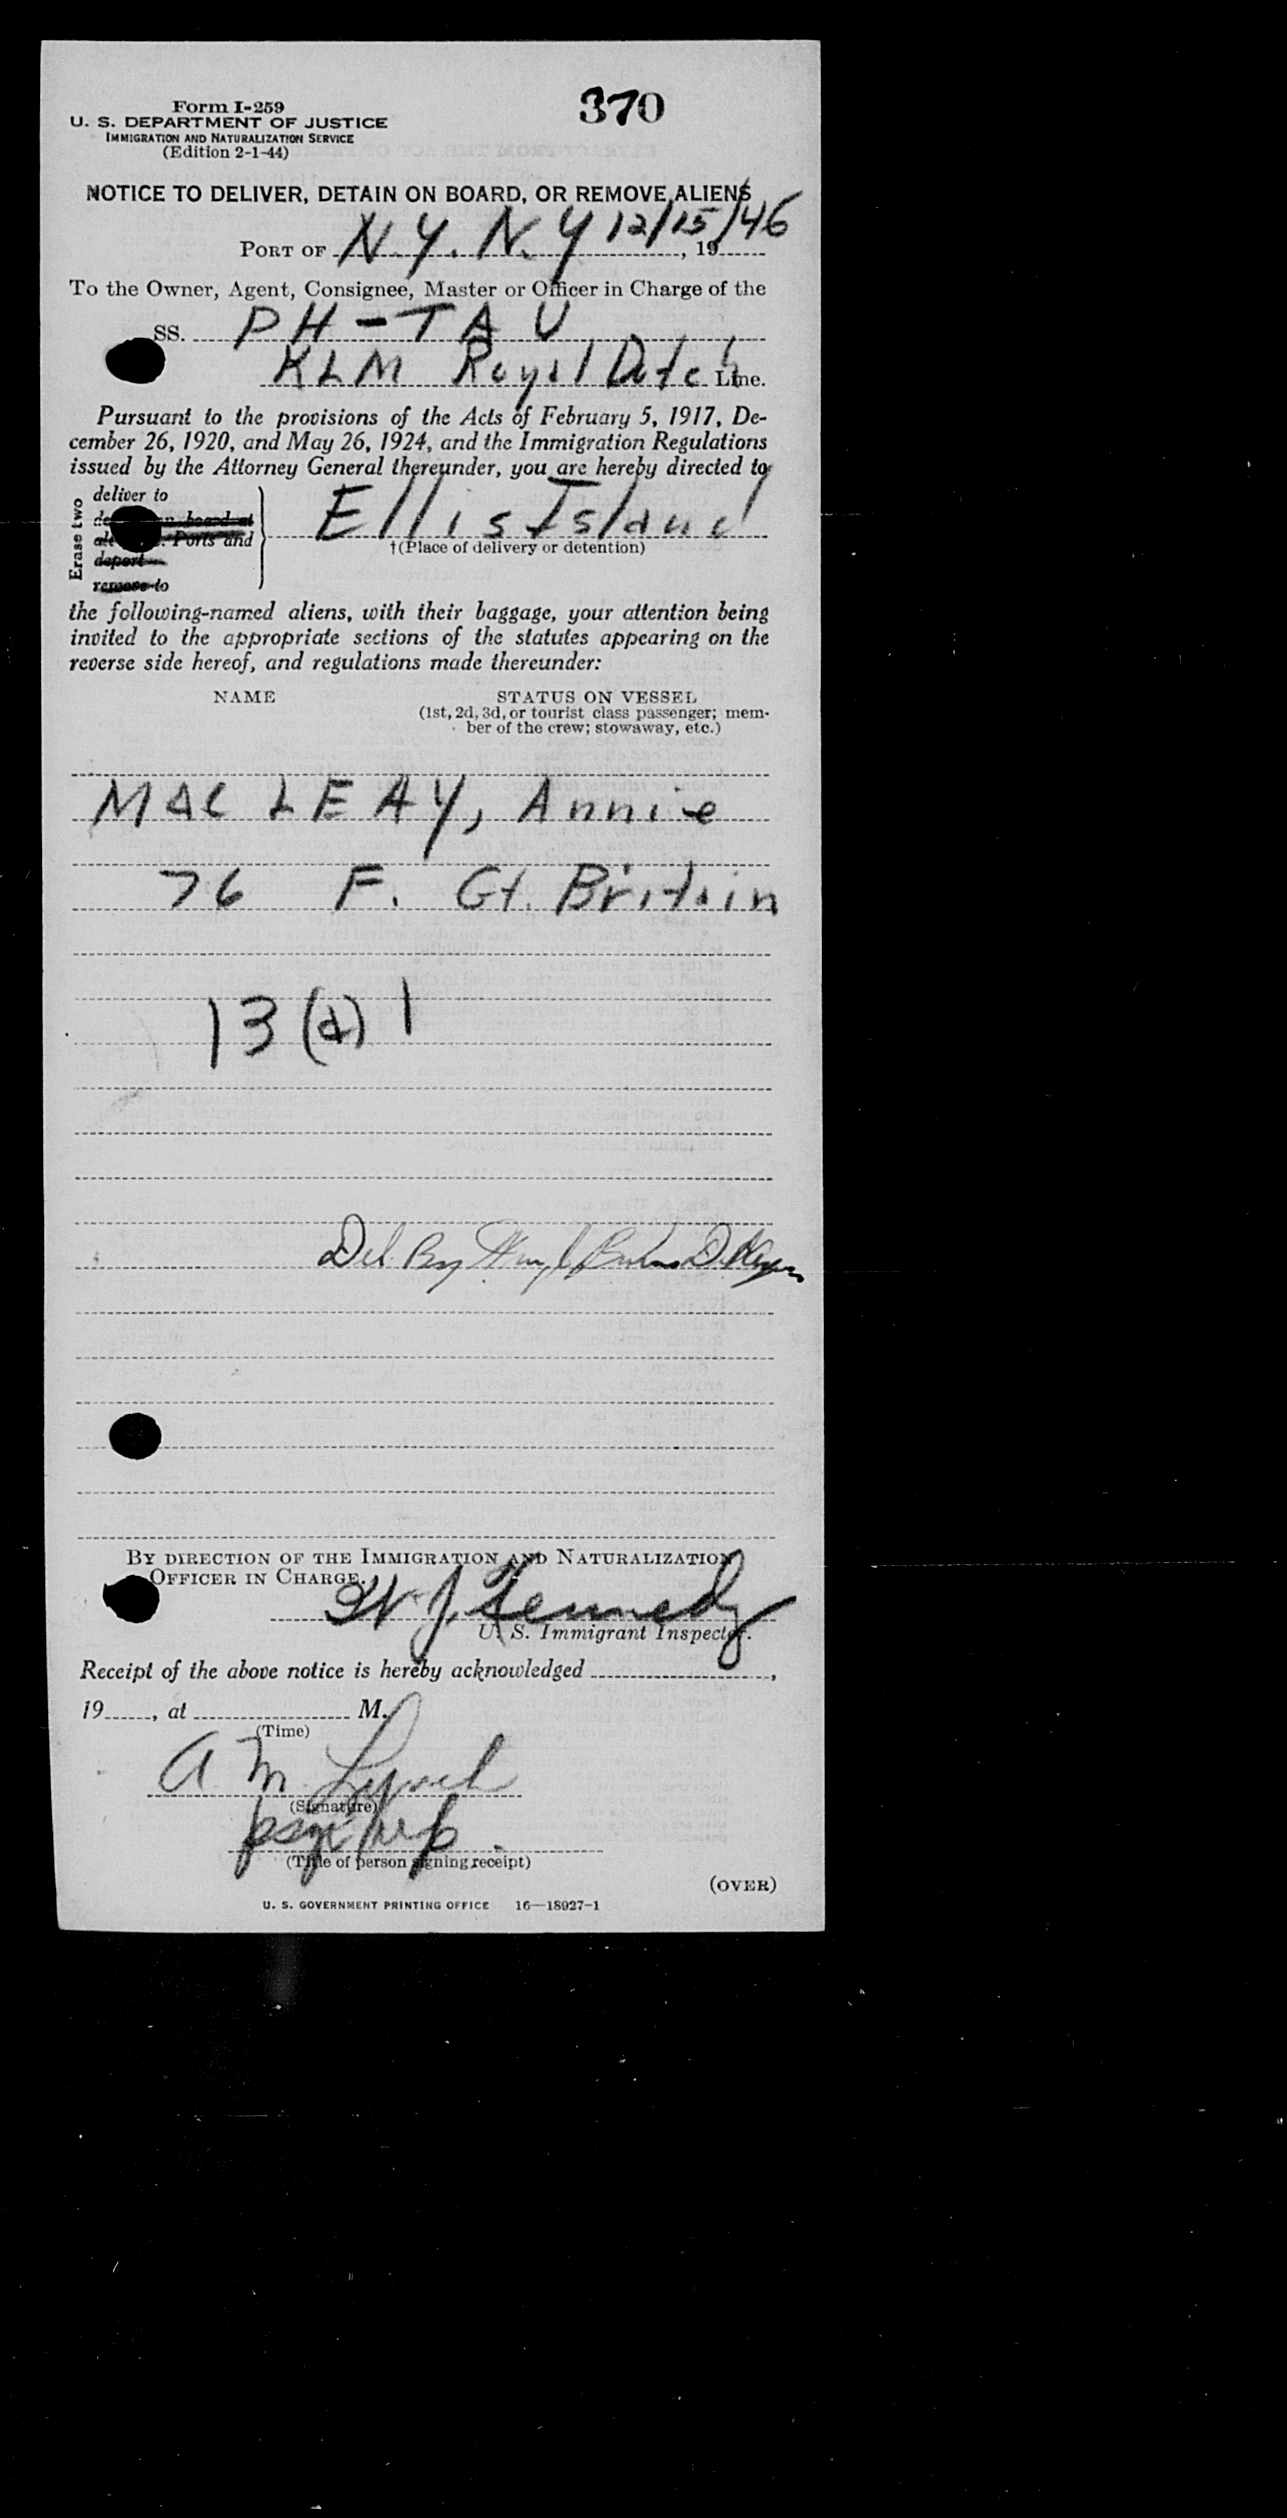 370
Form I-259
U. S. DEPARTMENT OF JUSTICE
IMMIGRATION AND NATURALIZATION SERVICE
(Edition 2-1-44)
NOTICE TO DELIVER, DETAIN ON BOARD, OR REMOVE ALIENS
PORT OF N.Y. N.Y 12/15/46, 19
To the Owner, Agent, Consignee, Master or Officer in Charge of the
SS. PH-TAU
KLM Royal Dutch Line.
Pursuant to the provisions of the Acts of February 5, 1917, De-
cember 26, 1920, and May 26, 1924, and the Immigration Regulations
issued by the Attorney General thereunder, you are hereby directed to
Erase two
deliver to
on board at
Ports and
deport
remove to
Ellis Island
†(Place of delivery or detention)
the following-named aliens, with their baggage, your attention being
invited to the appropriate sections of the statutes appearing on the
reverse side hereof, and regulations made thereunder:
NAME STATUS ON VESSEL
(1st, 2d, 3d, or tourist class passenger; mem-
ber of the crew; stowaway, etc.)
MAC LEAY, Annie
76 F. Gt. Britain
13 (a) 1
Del. By
BY DIRECTION OF THE IMMIGRATION AND NATURALIZATION
OFFICER IN CHARGE.
W. J. Kennedy
U. S. Immigrant Inspector.
Receipt of the above notice is hereby acknowledged ,
19 , at M.
(Time)
A M Lynch
(Signature)
(Title of person signing receipt)
(OVER)
U. S. GOVERNMENT PRINTING OFFICE 16—18927-1